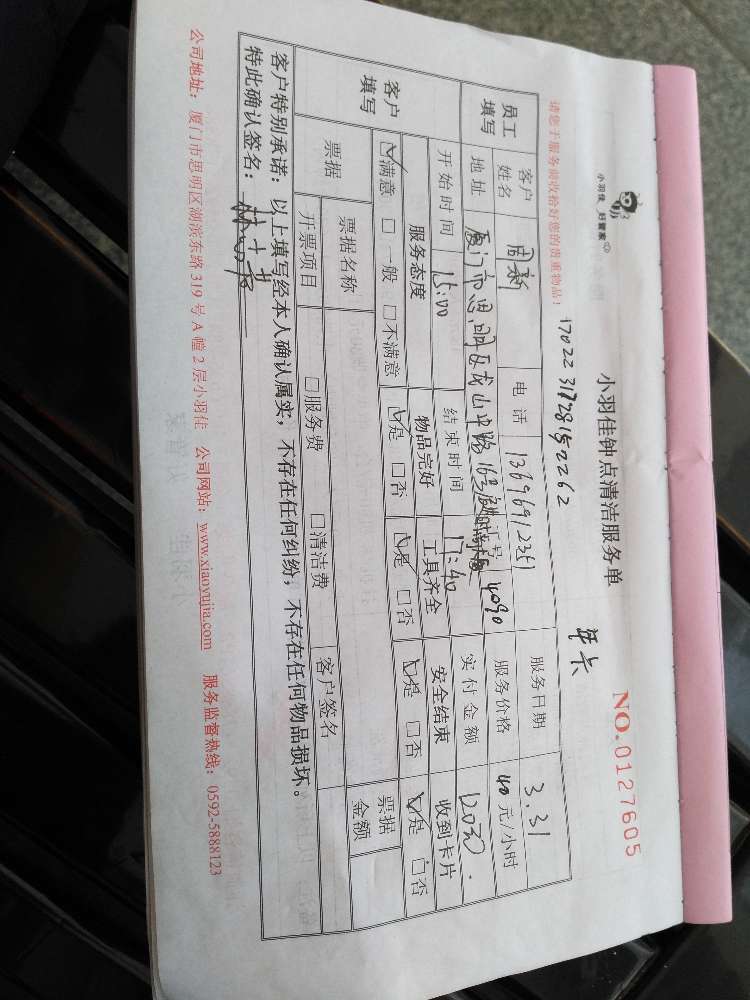 小羽佳 好管家
小羽佳钟点清洁服务单
NO.0127605
年卡
1702231728152262
请您于服务前收拾好您的贵重物品！
员工填写 客户姓名 周新 电话 13696912351 服务日期 3.31
地址 厦门市思明区 中路 16号 4090 服务价格 40 元/小时
开始时间 15:00 结束时间 17:40 实付金额
客户填写 服务态度 物品完好 工具齐全 安全结束 收到卡片
☑满意 □一般 □不满意 ☑是 □否 ☑是 □否 ☑是 □否 ☑是 □否
票据 票据名称 票据金额
开票项目 □服务费 □清洁费 客户签名
客户特别承诺：以上填写经本人确认属实，不存在任何纠纷，不存在任何物品损坏。
特此确认签名：
公司地址：厦门市思明区湖滨东路 319 号 A 幢 2 层小羽佳 公司网站：www.xiaoyujia.com 服务监督热线：0592-5888123